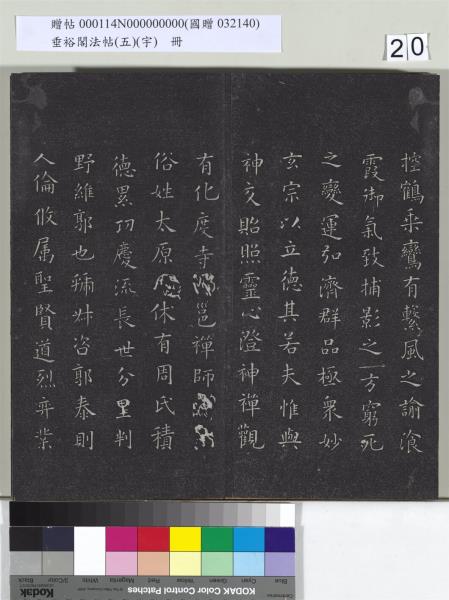 贈帖 000114N000000000(國贈 032140)
垂裕閣法帖(五)(字) 冊
20
控鶴乘鸞有繫風之諭飡
霞御氣致捕影之方窮死
之變運弘濟群品極衆妙
玄宗以立德其若夫惟與
神交貽照靈心澄神禪觀
有化度寺邕禪師
俗姓太原休有周氏積
德累功慶流長世分星判
野維郭也稱叔咨郭泰則
人倫攸属聖賢道烈弈葉
Blue Cyan Green Yellow Red Magenta White 3/Color Black
KODAK Color Control Patches
Kodak